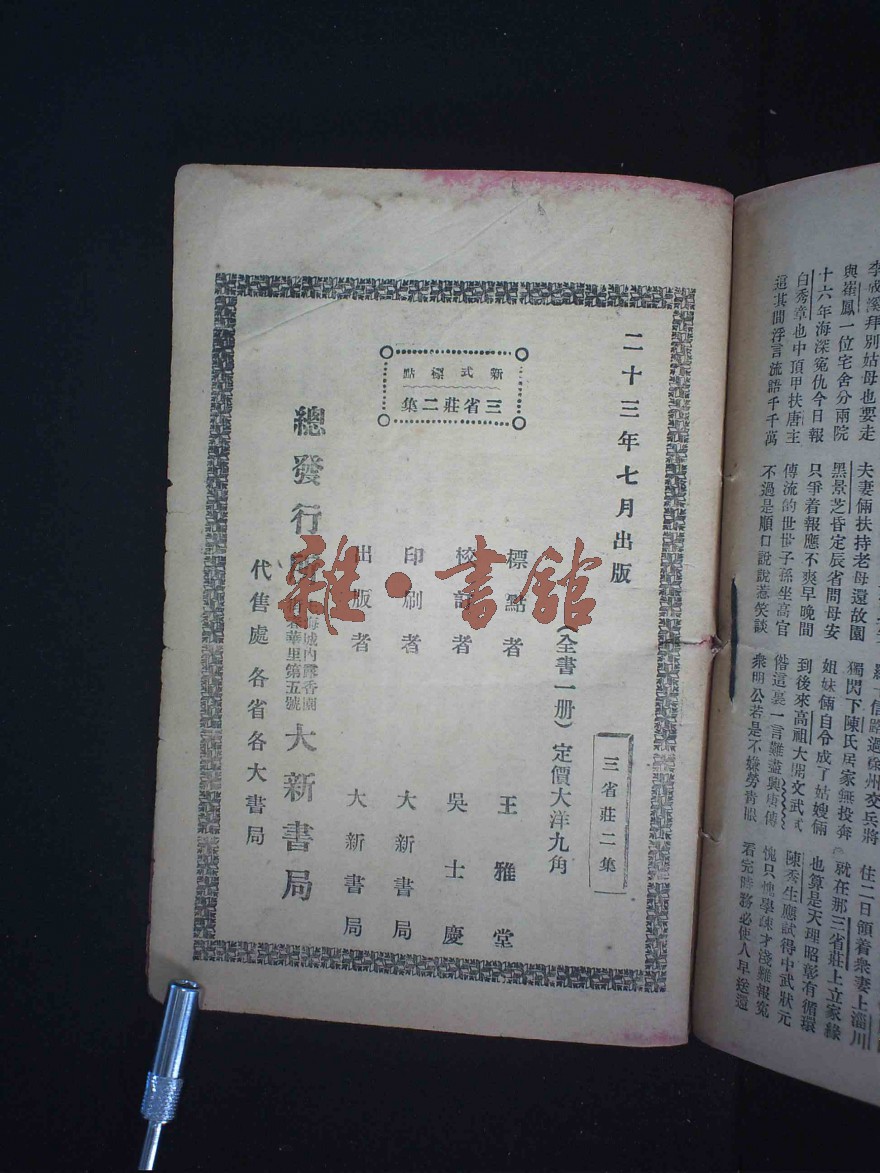 二十三年七月出版
新式標點
三省莊二集
三省莊二集
(全書一册)定價大洋九角
標點者 王雅堂
校訂者 吳士慶
印刷者 大新書局
出版者 大新書局
總發行所 海城內露香園 華里第五號 大新書局
代售處 各省各大書局
雜·書館
李成溪拜別姑母也要走
與崔鳳一位宅舍分兩院
十六年海深冤仇今日報
白秀章也中頂甲扶唐主
這其間浮言流語千千萬
夫妻倆扶持老母還故園
黑景芝昏定辰省問母安
只爭着報應不爽早晚間
傳流的世世子孫坐高官
不過是順口說說惹笑談
獨閃下陳氏居家無投奔
姐妹倆自令成了姑嫂倆
到後來高祖大開文武
偺這裏一言難盡興唐傳
衆明公若是不嫌勞青眼
住二日領着衆妻上淄川
就在那三省莊上立家緣
也算是天理昭彰有循環
陳秀生應試得中武狀元
愧只愧學疎才淺難報寃
看完時務必使人早送還